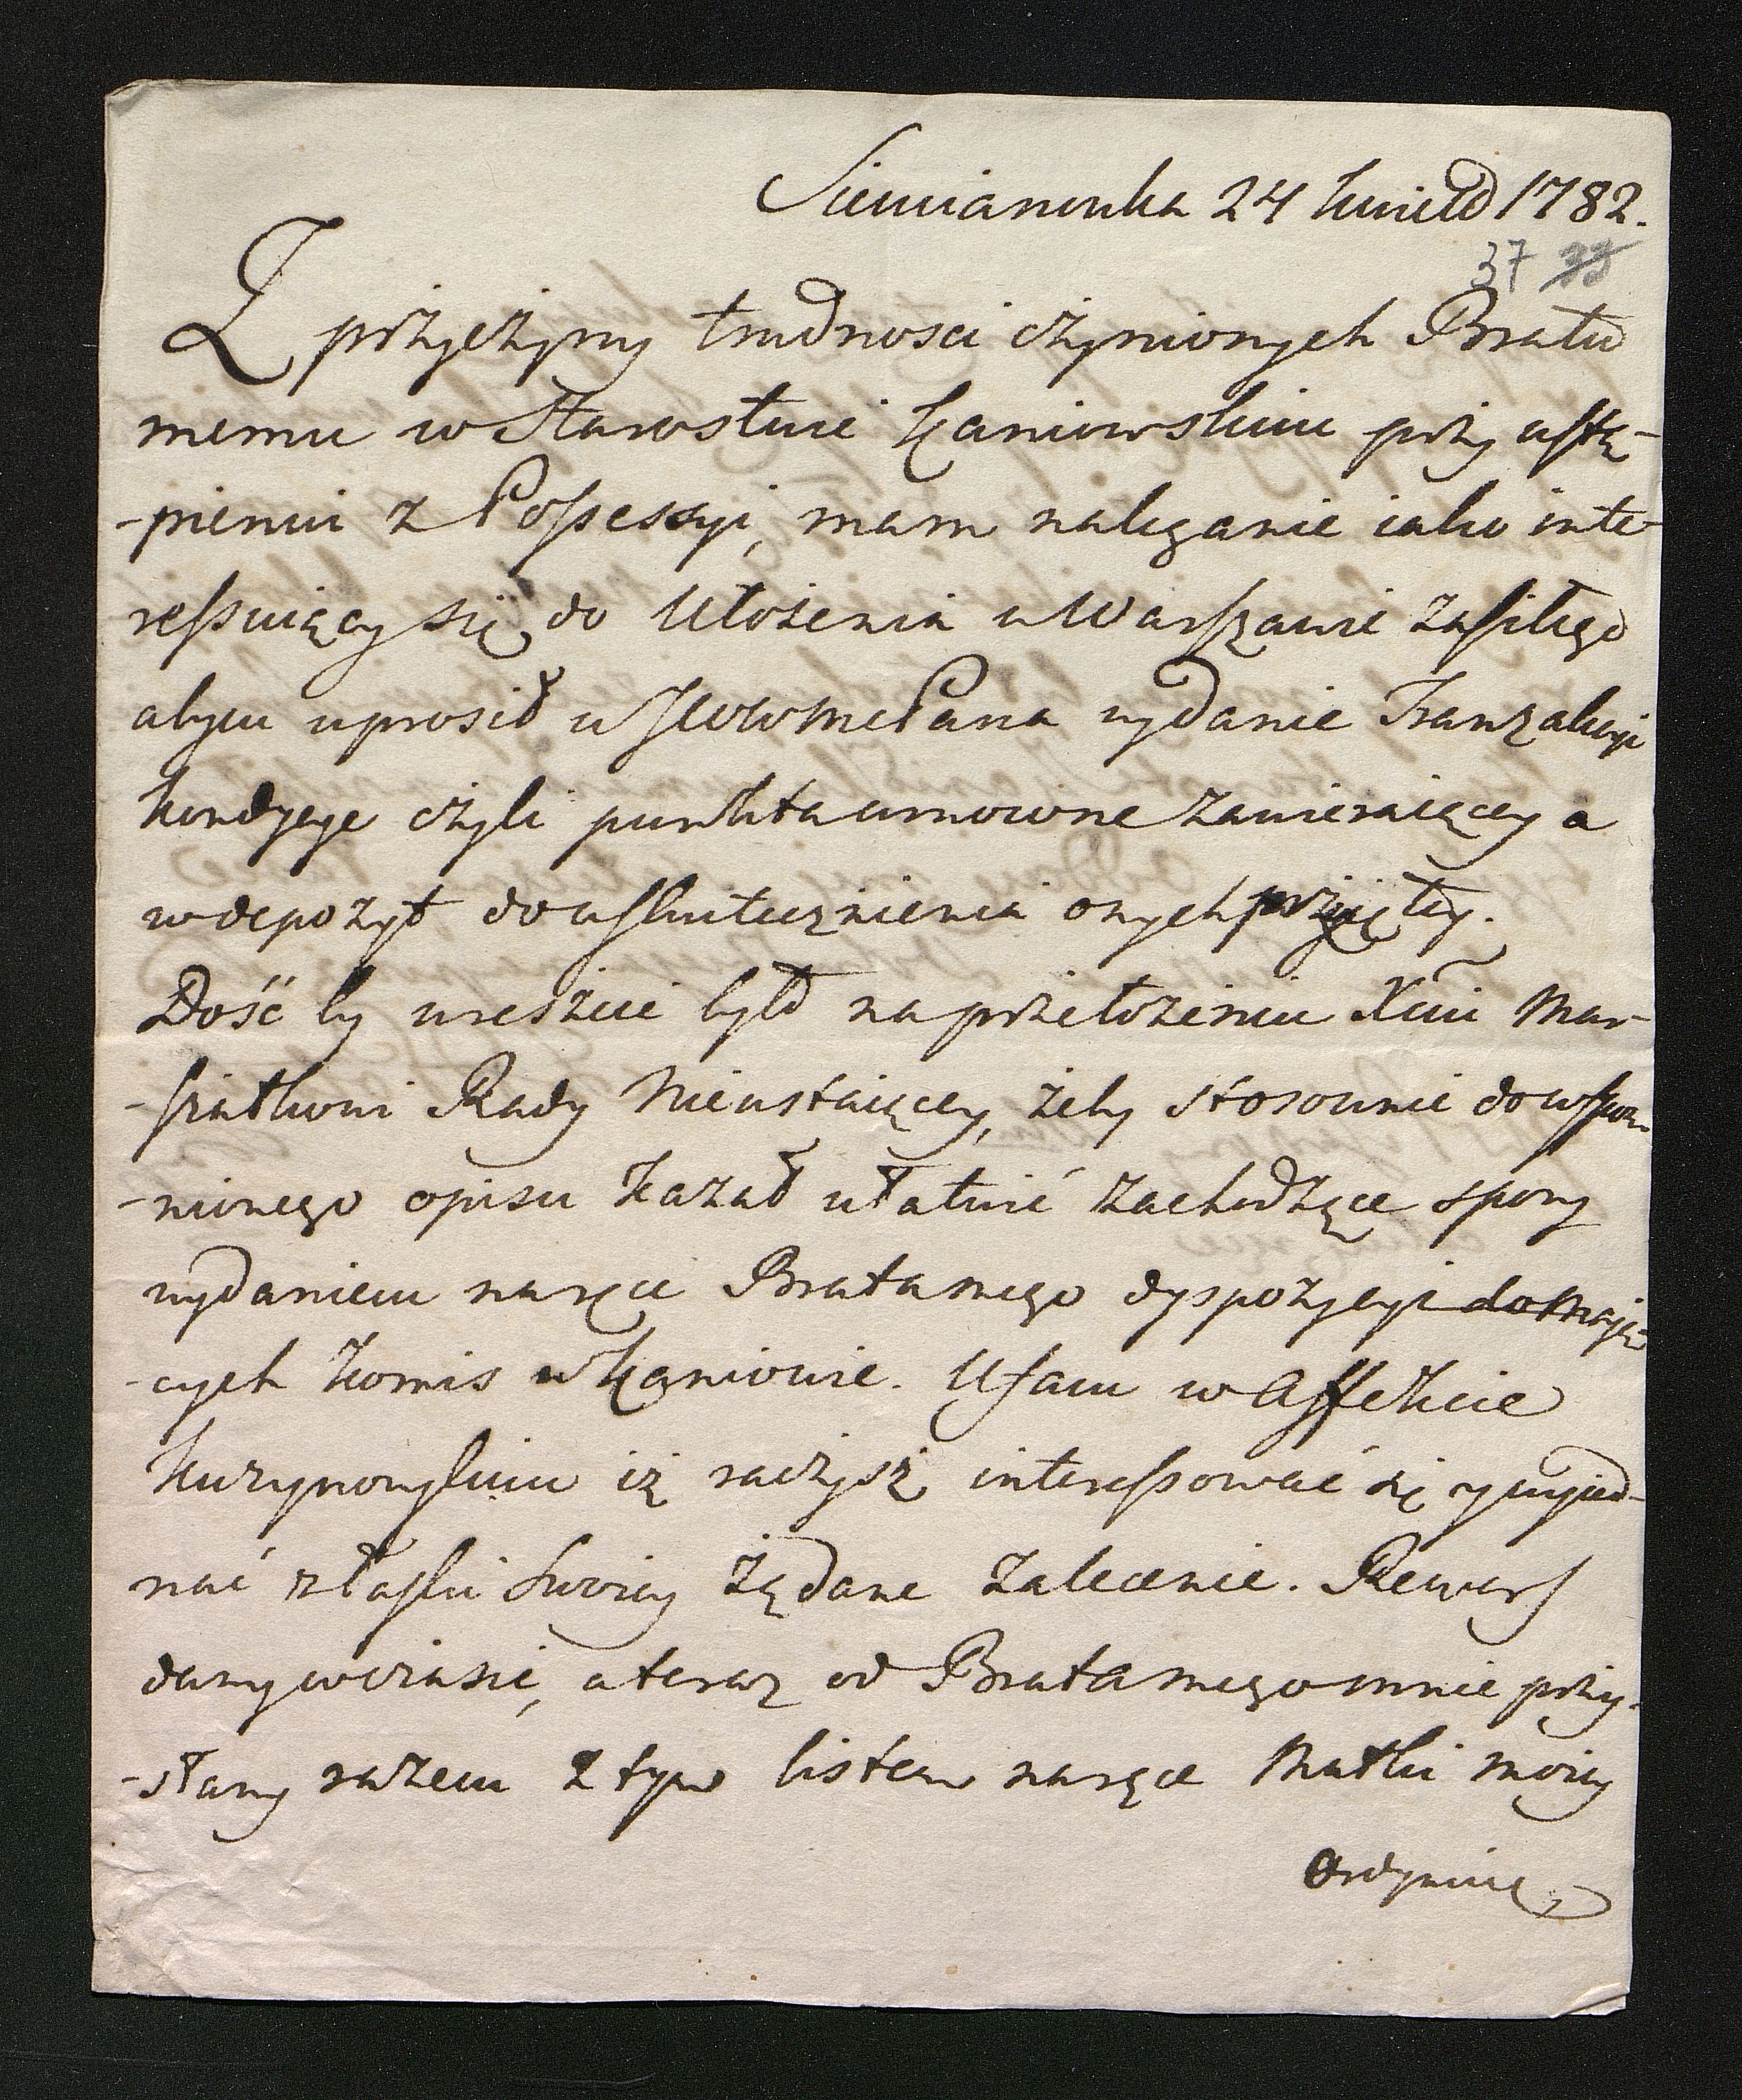 Siemianowka 24 kwiet 1782.
37 33
Z przyczyny trudnosci czynionych Bratu
memu w Starostwie Kaniowskim przy ustą-
-pieniu z Possessyi, mam naleganie iako inte-
ressuiący się do Ułożenia w Warszawie zaszłego
abym uprosił u JWWMcPana wydanie Tranzakcyi
kondycye czyli punkta umowne zawieraiącey a
w depozyt do uskutecznienia onych przyiętey.
Dość by wreszcie było na przełożeniu Xciu Mar-
-szałkowi Rady Nieustaiącey, żeby stosownie do wspom-
-nionego opisu kazał ułatwić zachodzące spory
wydaniem na ręce Brata mego dyspozycyi do maią-
-cych komis w Kaniowie. Ufam w Affekcie
kuzynowskim iż raczysz interessować się y wyied-
nać z łaski Swoiey żądane zalecenie. Rewers
dany w czasie, a teraz od Brata mego mnie przy-
-słany razem z tym listem na ręce Matki moiey
Ordynuię